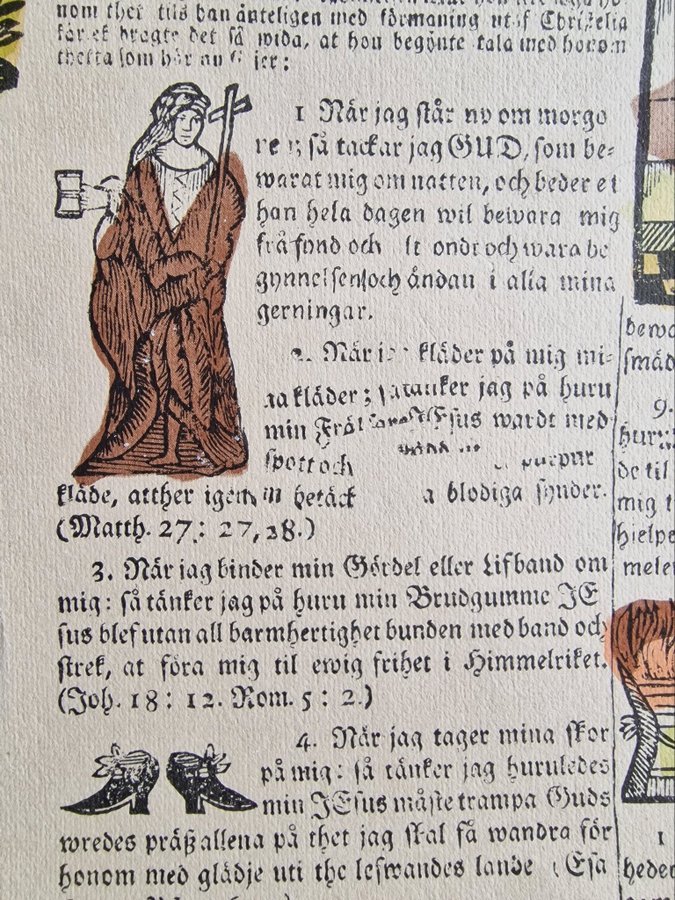 nom thet tils han änteligen med förmaning utaf Christelia
det så wida, at hon begönte tala med honom
thetta som här
1 När jag står up om morgo
så tackar jag GUD, som be⸗
warat mig om natten, och beder et
han hela dagen wil bewara mig
frå synd och ondt och wara be
gynnelsen och ändan i alla mina
gerningar.
2. När kläder på mig mi⸗
na kläder; så tänker jag på huru
min JEsus wardt med
spott och purpur
kläde, at ther igen betäck a blodiga synder.
(Matth. 27: 27, 28.)
3. När jag binder min Gördel eller Lifband om
mig: så tänker jag på huru min Brudgumme JE
sus blef utan all barmhertighet bunden med band och
strek, at föra mig til ewig frihet i Himmelriket.
(Joh. 18: 12. Rom. 5: 2.)
4. När jag tager mina skor
på mig: så tänker jag huruledes
min JEsus måste trampa Guds
wredes präß allena på thet jag skal få wandra för
honom med glädje uti the lefwandes lande (Esa
bewa
smäd
9.
huru
de til
mig t
hjelpe
melen
1
heder